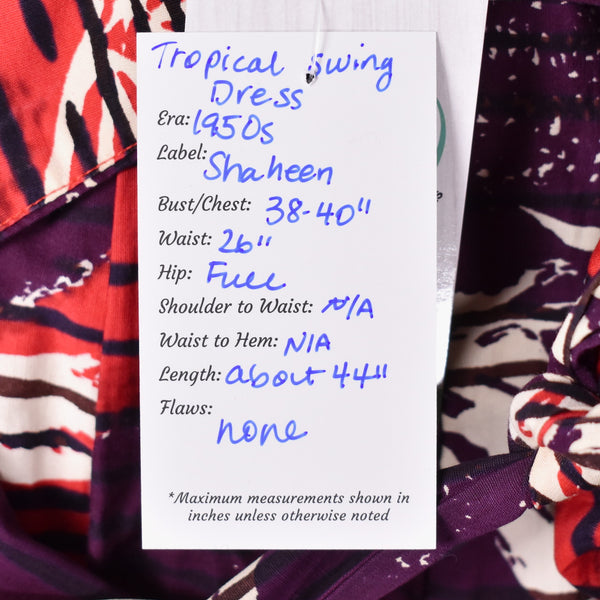 Tropical Swing
Dress
Era: 1950s
Label:
Shaheen
Bust/Chest: 38-40"
Waist: 26"
Hip: Full
Shoulder to Waist: N/A
Waist to Hem: N/A
Length: about 44"
Flaws:
none
*Maximum measurements shown in
inches unless otherwise noted